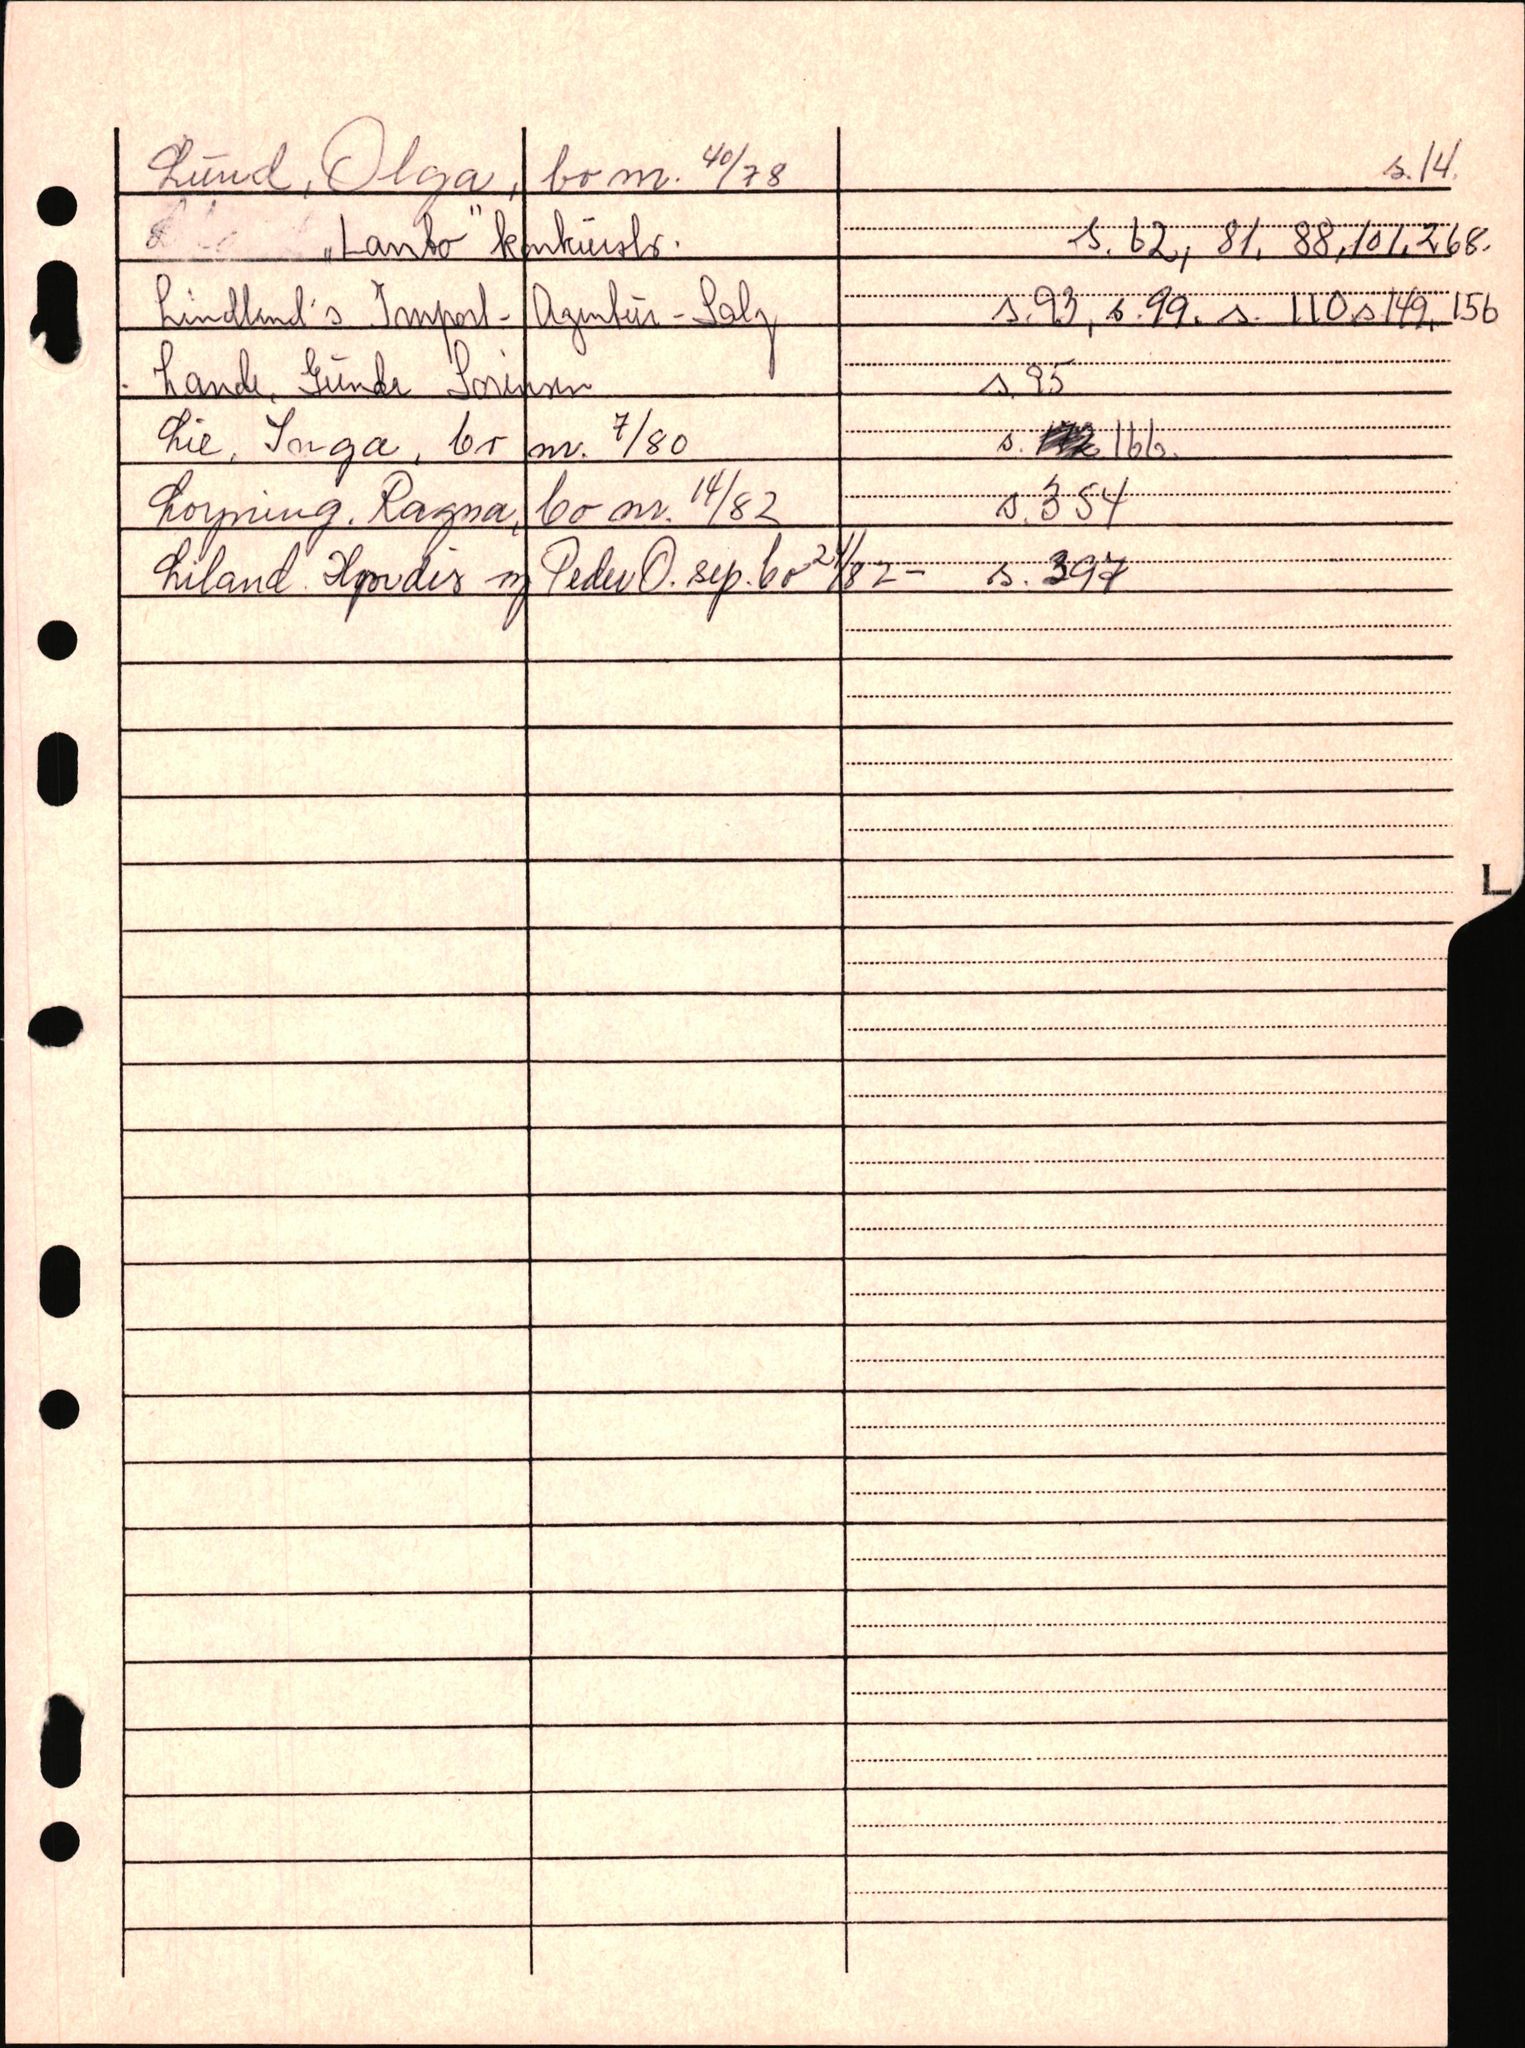 Lund, Olga, bo nr. 40/78 s. 14.
"Lanbo" konkursbo. s. 62, 81, 88, 101, 268.
Lindland's Import- Agentur- Salg s. 93, s. 99, s. 110 s 149, 156
Lande, Gunde Sørensen s. 95
Lie, Inga, bo nr. 7/80 s. 166.
Ragna, bo nr. 14/82 s. 354
Liland Hjørdis og Peder O. sep. bo 21/82 - s. 397
L